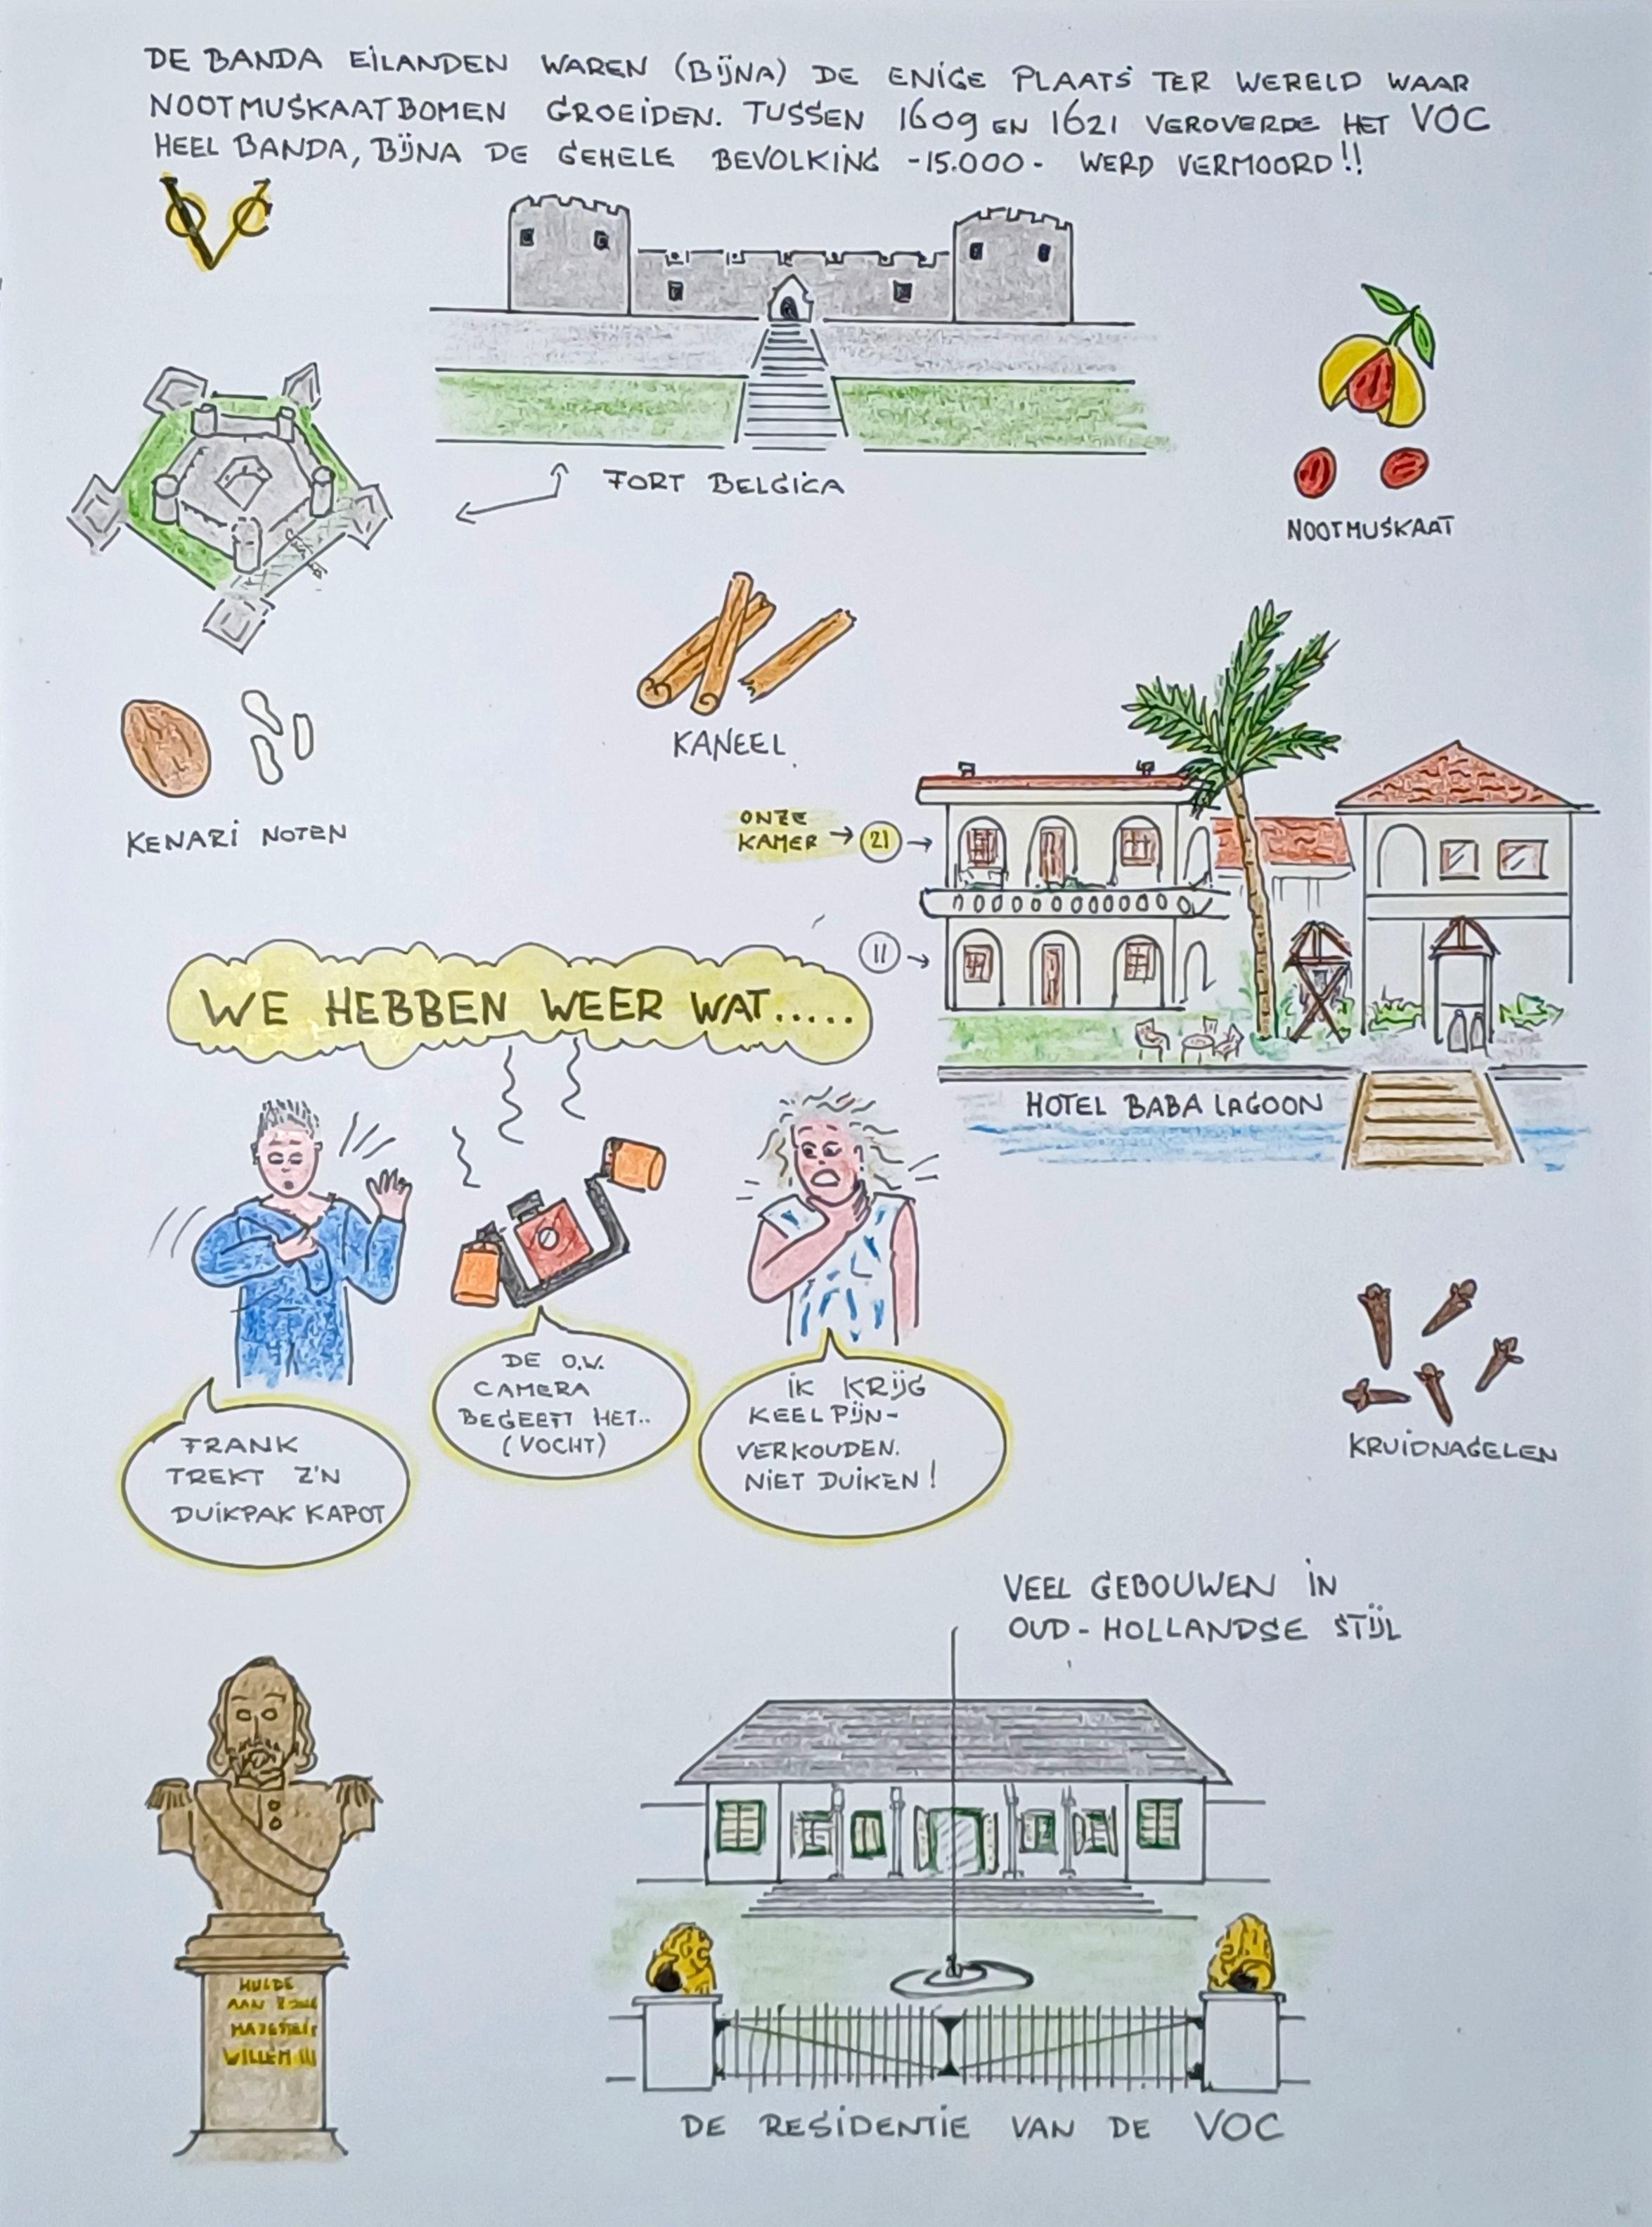 DE BANDA EILANDEN WAREN (BIJNA) DE ENIGE PLAATS TER WERELD WAAR
NOOTMUSKAATBOMEN GROEIDEN. TUSSEN 1609 EN 1621 VEROVERDE HET VOC
HEEL BANDA, BIJNA DE GEHELE BEVOLKING -15.000- WERD VERMOORD!!
FORT BELGICA
NOOTMUSKAAT
KANEEL
KENARI NOTEN
ONZE
KAMER → 21 →
11 →
HOTEL BABA LAGOON
WE HEBBEN WEER WAT.....
FRANK
TREKT Z'N
DUIKPAK KAPOT
DE O.W.
CAMERA
BEGEEFT HET..
(VOCHT)
IK KRIJG
KEELPIJN-
VERKOUDEN.
NIET DUIKEN!
KRUIDNAGELEN
VEEL GEBOUWEN IN
OUD-HOLLANDSE STIJL
HULDE
AAN
WILLEM III
DE RESIDENTIE VAN DE VOC